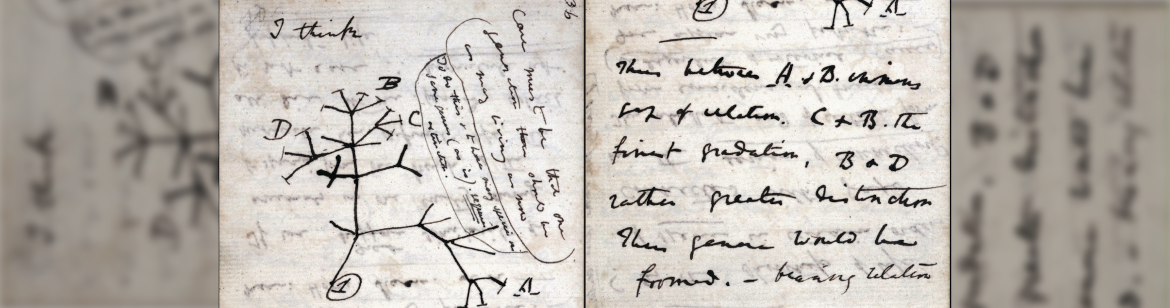 36
I think
Case must be that one
generation then should be
as many living as now
To do this & to have many species in
same genus (as is) requires
extinction.
B
C
D
A
1
1
A
Thus between A & B. immens
gap of relation. C & B. the
finest gradation, B & D
rather greater distinction
Thus genera would be
formed. — bearing relation